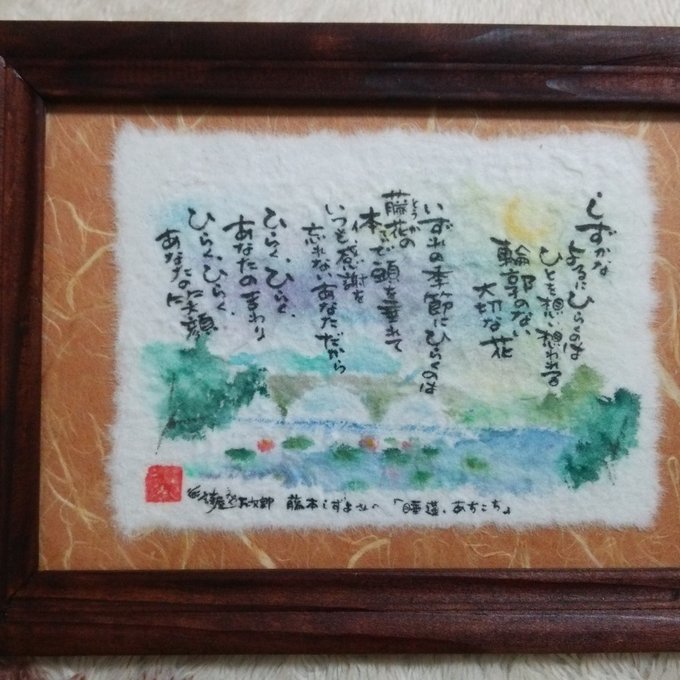 しずかな
よるにひらくのは
ひとを想い想われる
輪郭のない
大切な花
いずれの季節にひらくのは
藤花の
とうか
体まで頭を垂れて
感謝を
いつも
忘れない、あなただから
ひらく、ひらく、
あなたのまわり
ひらく、ひらく、
あなたの笑顔
藤本しずよさんへ 「睡蓮、あちこち」